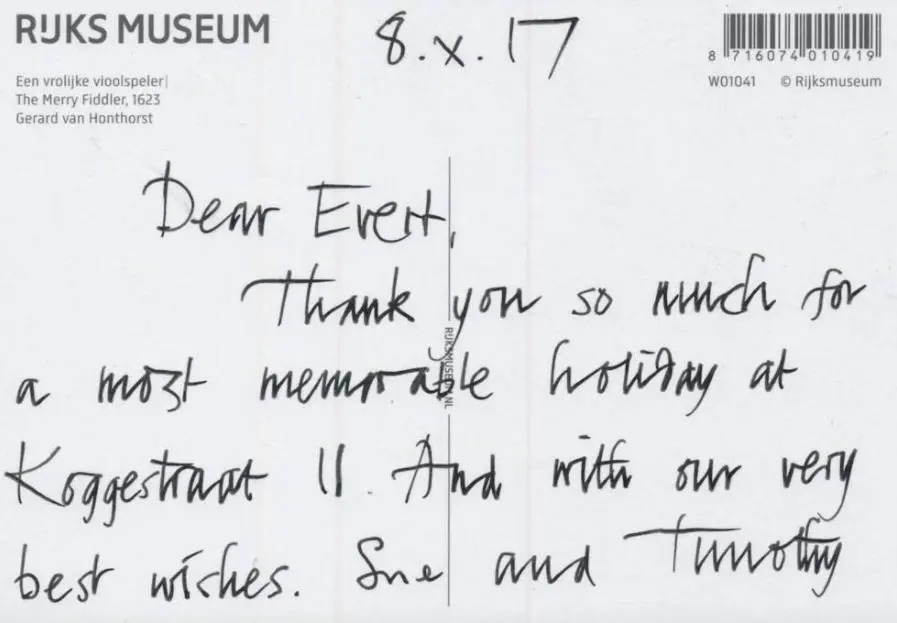 RIJKS MUSEUM
8.x.17
8 716074 010419
Een vrolijke vioolspeler|
The Merry Fiddler, 1623
Gerard van Honthorst
W01041 © Rijksmuseum
Dear Evert,
Thank you so much for
a most memorable holiday at
Koggestraat 11. And with our very
best wishes. Sue and Timothy
RIJKSMUSEUM.NL